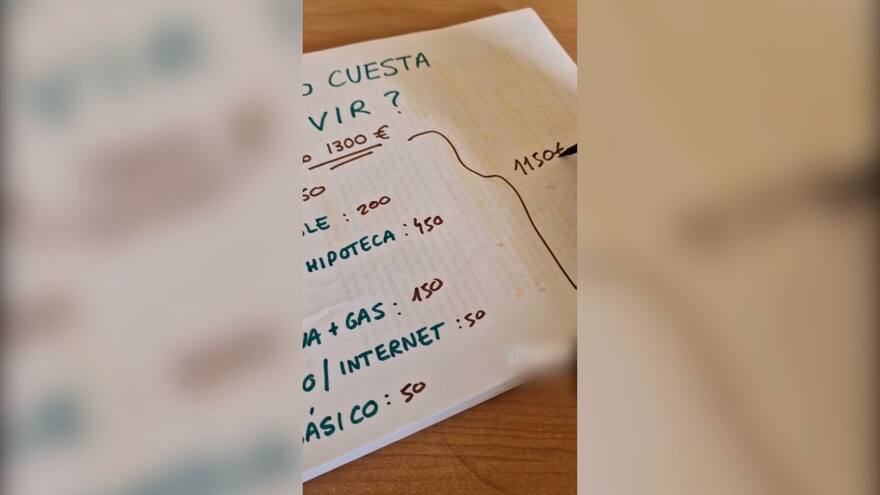 CUESTA
VIR ?
1300 €
1150€
50
LE : 200
HIPOTECA : 450
UA + GAS : 150
O / INTERNET : 50
ÁSICO : 50